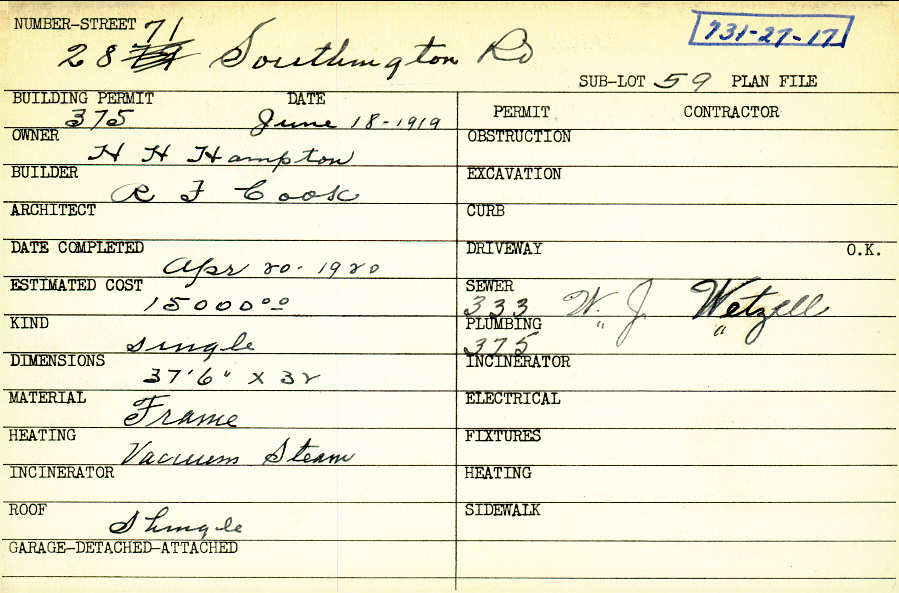 NUMBER-STREET 71
28 Southington Rd
731-27-17
SUB-LOT 59 PLAN FILE
BUILDING PERMIT DATE
375 June 18-1919
OWNER
H H Hampton
BUILDER
R F Cook
ARCHITECT
DATE COMPLETED
Apr 20-1920
ESTIMATED COST
15000 00
KIND
Single
DIMENSIONS
37'6" x 32
MATERIAL
Frame
HEATING
Vacuum Steam
INCINERATOR
ROOF
Shingle
GARAGE-DETACHED-ATTACHED
PERMIT CONTRACTOR
OBSTRUCTION
EXCAVATION
CURB
DRIVEWAY O.K.
SEWER
333 W. J. Wetzell
PLUMBING " "
375
INCINERATOR
ELECTRICAL
FIXTURES
HEATING
SIDEWALK